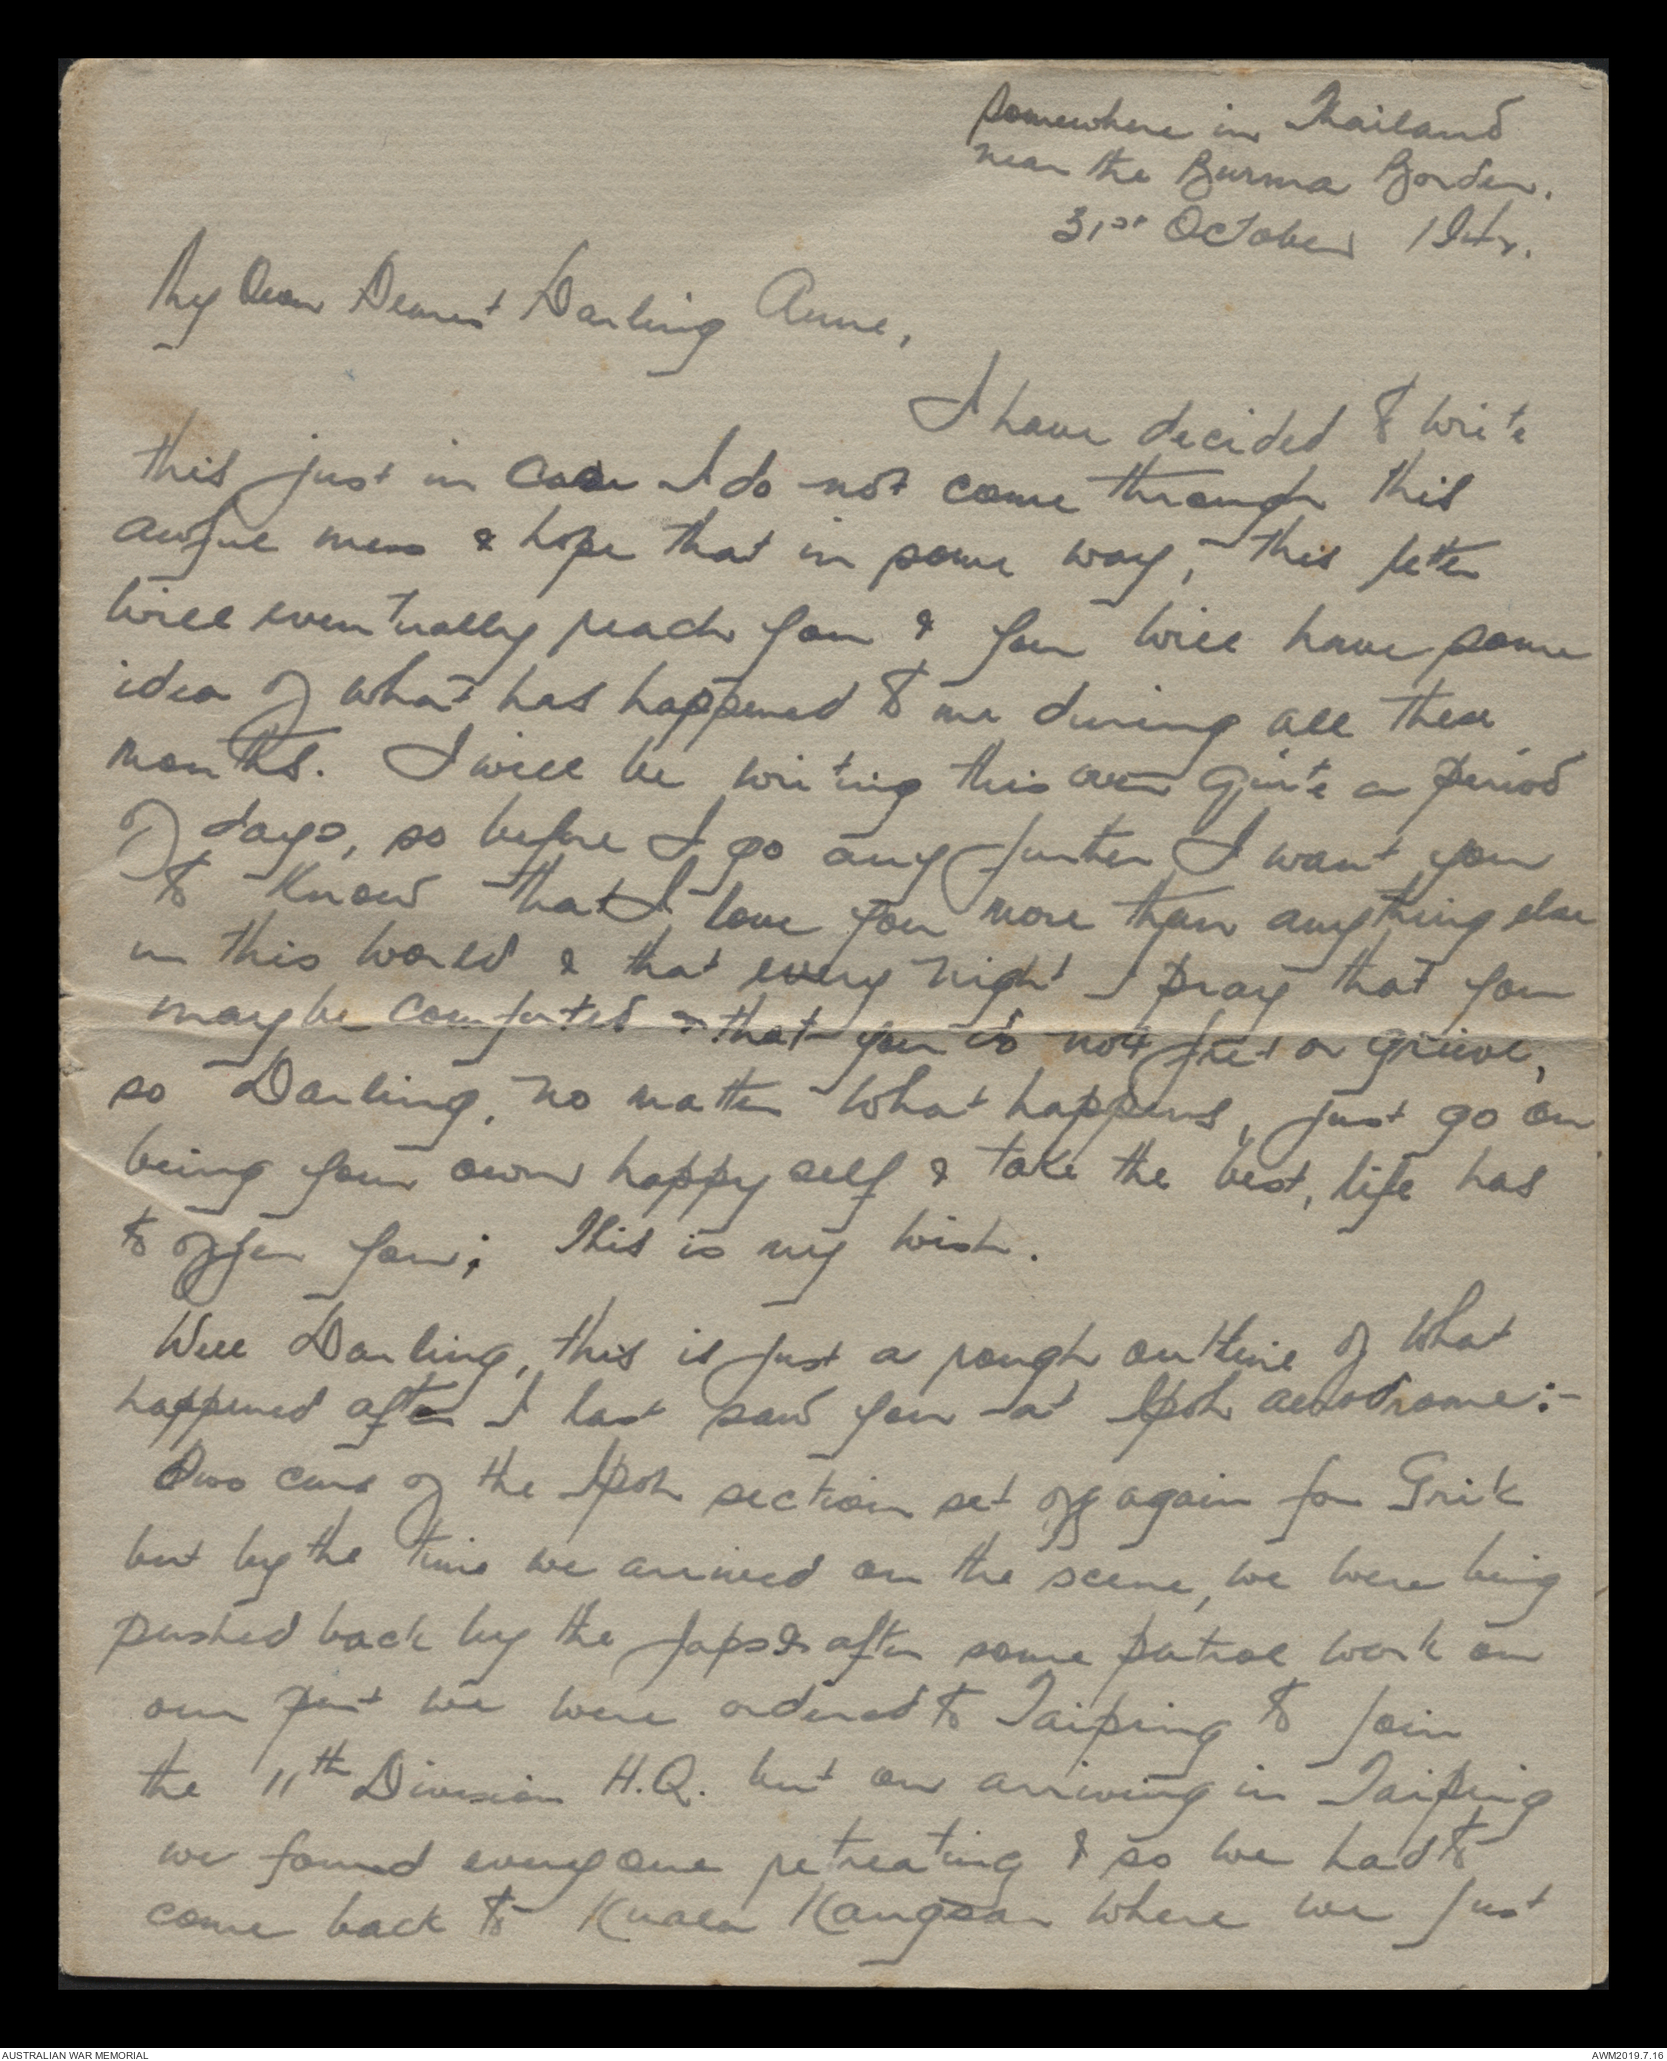 Somewhere in Thailand
near the Burma Border.
31st October 194
My Own Dearest Darling Anne,
I have decided to write
this just in case I do not come through this
awful mess & hope that in some way, this letter
will eventually reach you & you will have some
idea of what has happened to me during all these
months. I will be writing this over quite a period
of days, so before I go any further I want you
to know that I love you more than anything else
in this world & that every night I pray that you
may be comforted & that you do not fret or grieve,
so Darling, no matter what happens, just go on
being your own happy self & take the best, life has
to offer you; This is my wish.
Well Darling, this is just a rough outline of what
happened after I last saw you at Ipoh aerodrome:-
Two cars of the Ipoh section set off again for Grik
but by the time we arrived on the scene, we were being
pushed back by the Japs & after some patrol work on
our part we were ordered to Taiping to join
the 11th Division H.Q. but on arriving in Taiping
we found everyone retreating & so we had to
come back to Kuala Kangsar where we just
AUSTRALIAN WAR MEMORIAL
AWM2019.7.16